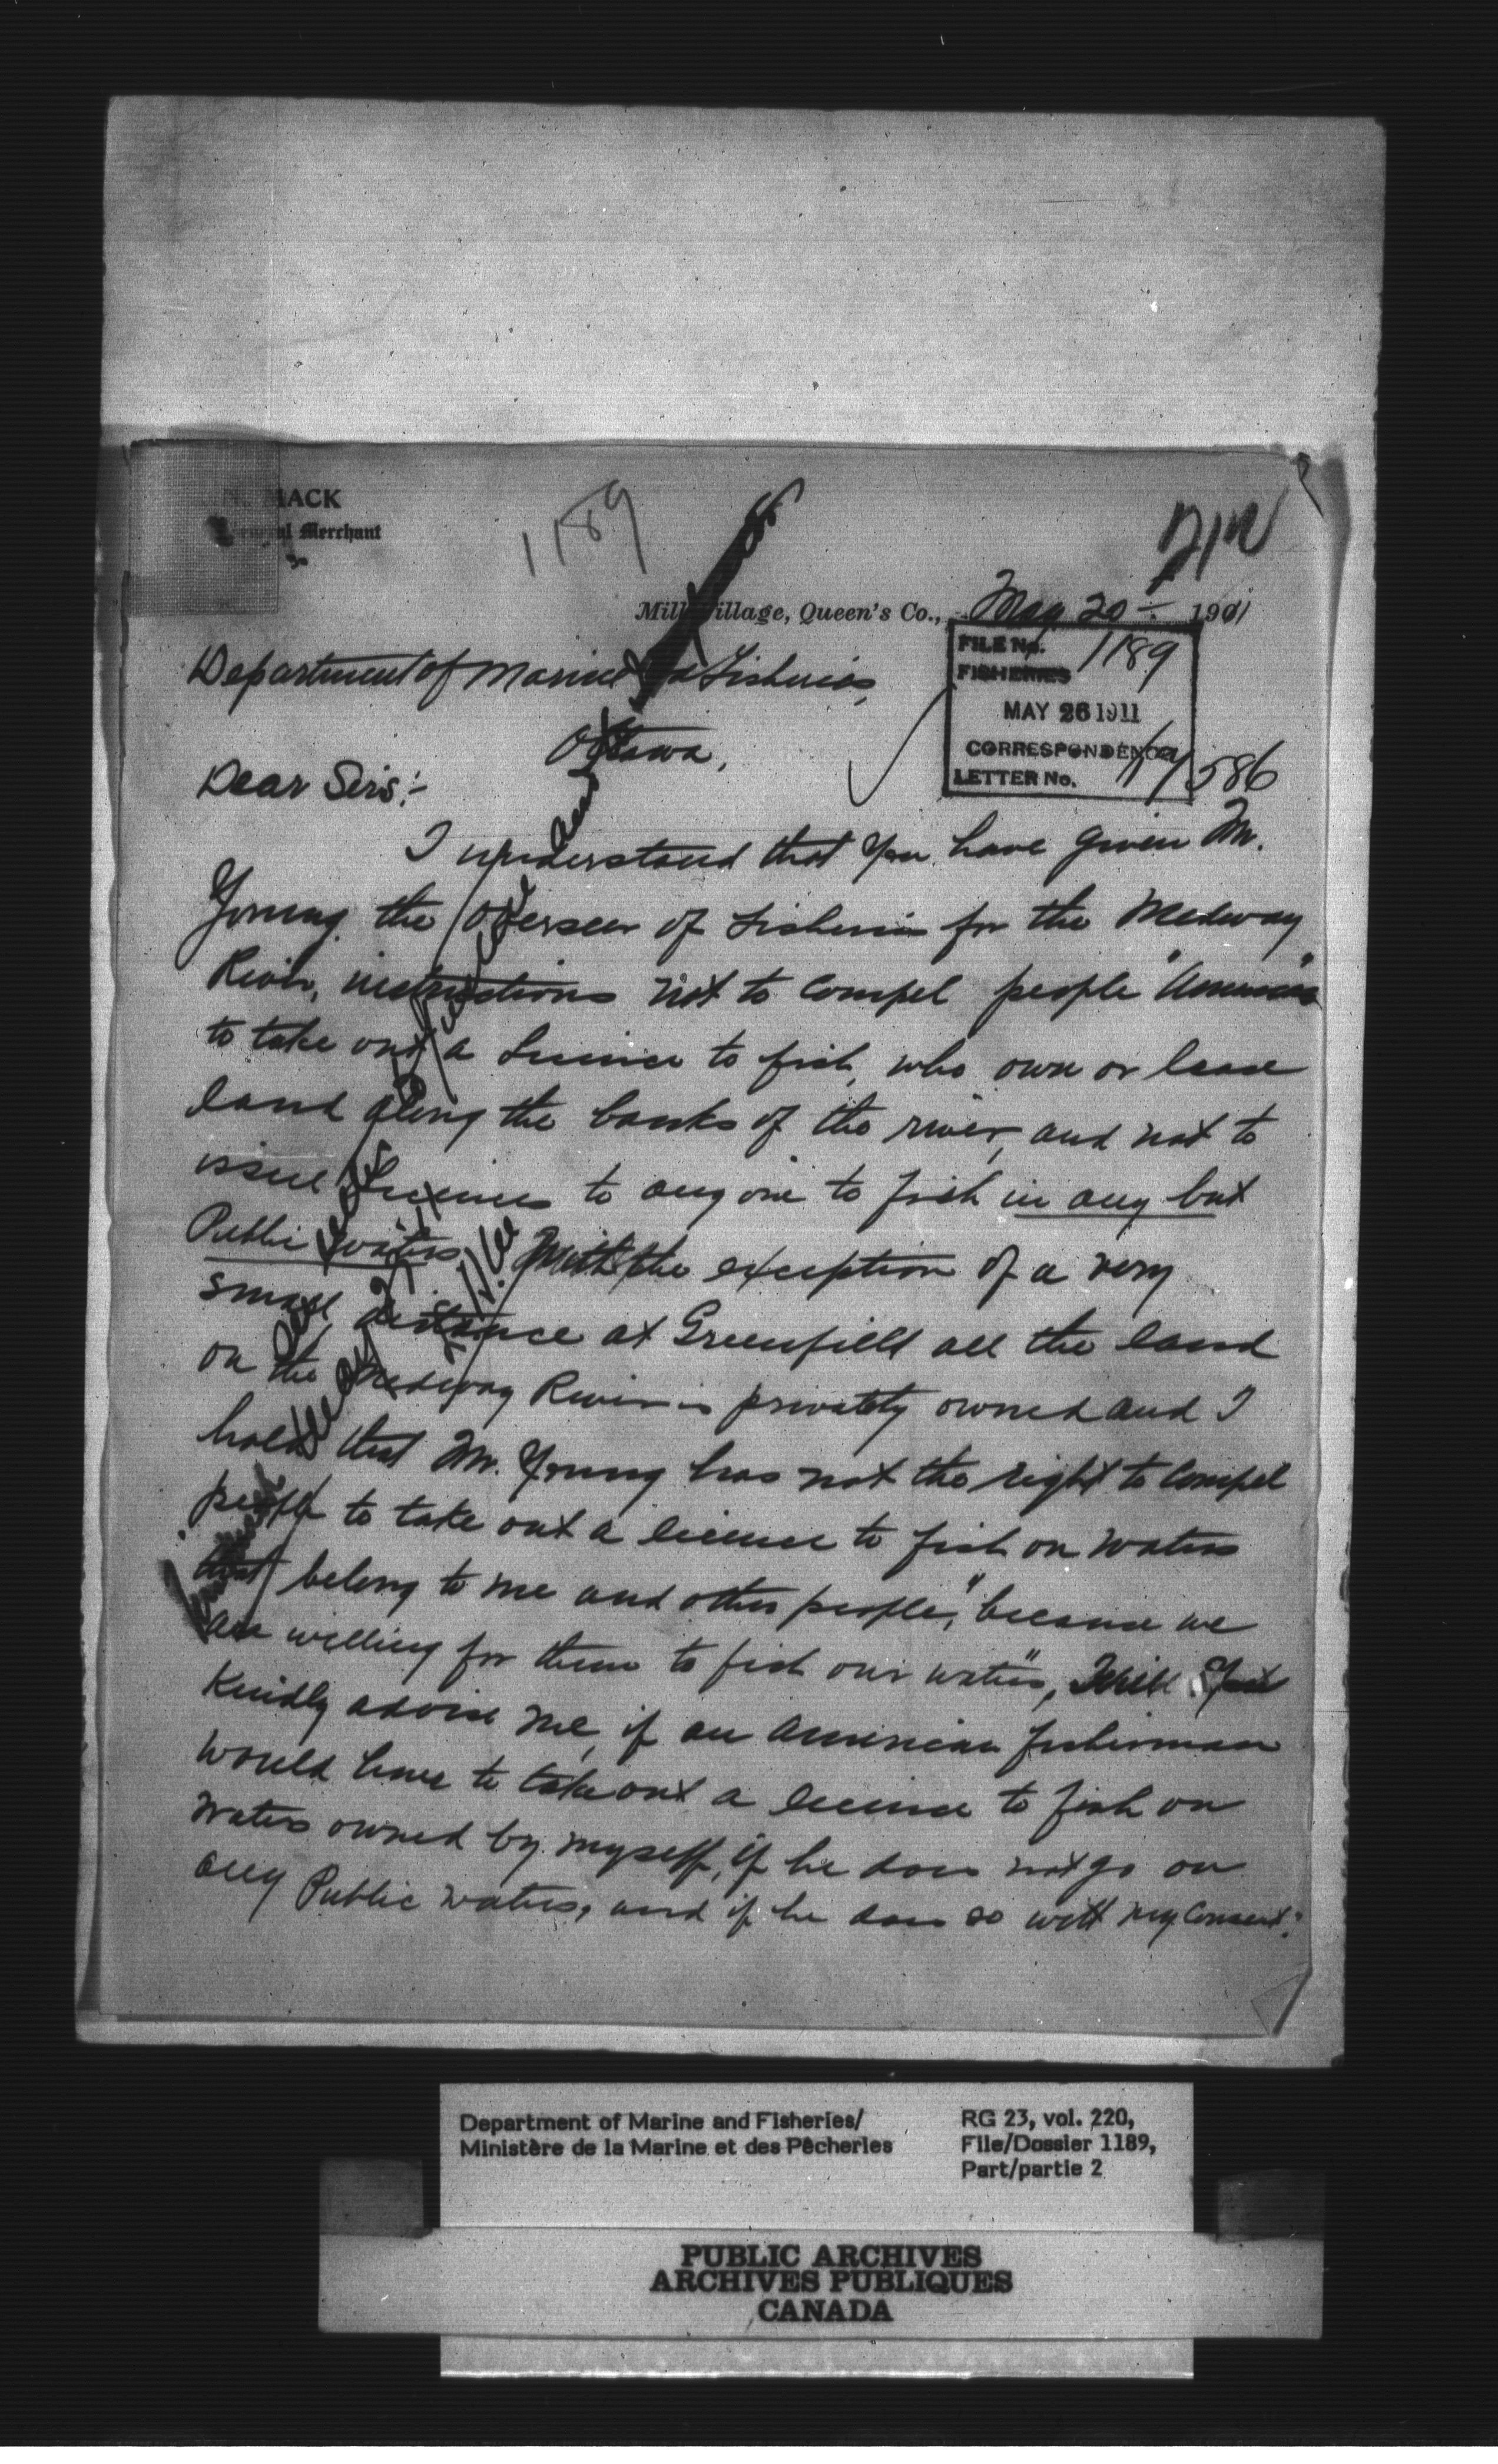 N. MACK
General Merchant
1189
Mill Village, Queen's Co., May 20th 1911
FILE No. 1189
FISHERIES
MAY 26 1911
CORRESPONDENCE
LETTER No. 586
Department of Marine & Fisheries,
Ottawa,
Dear Sirs:-
I understand that you have given Mr.
Young the Overseer of Fisheries for the Medway
River, instructions not to compel people "Americans"
to take out a License to fish, who own or lease
land along the banks of the river, and not to
issue Licenses to any one to fish in any but
Public waters. With the exception of a very
small distance at Greenfield all the land
on the Medway River is privately owned and I
hold that Mr. Young has not the right to compel
people to take out a license to fish on waters
that belong to me and other people, "because we
are willing for them to fish our waters", Will You
Kindly advise me, if an American fisherman
would have to take out a license to fish on
waters owned by myself, if he does not go on
any Public waters, and if he does so with my consent.
Department of Marine and Fisheries/
Ministère de la Marine et des Pêcheries
RG 23, vol. 220,
File/Dossier 1189,
Part/partie 2
PUBLIC ARCHIVES
ARCHIVES PUBLIQUES
CANADA